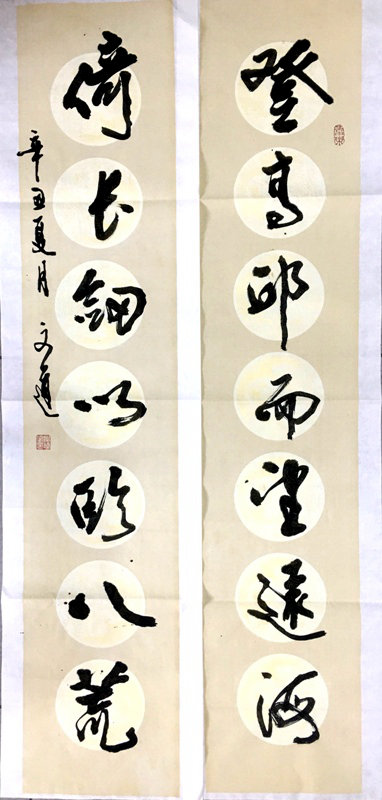 登高邱而望遠海
倚長劍以臨八荒
辛丑夏月 文蓮